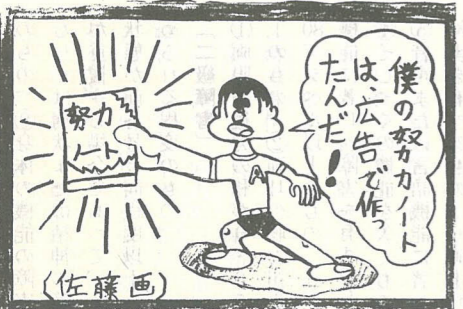 僕の努力ノート
は、広告で作っ
たんだ!
努力
ノート
A
(佐藤画)